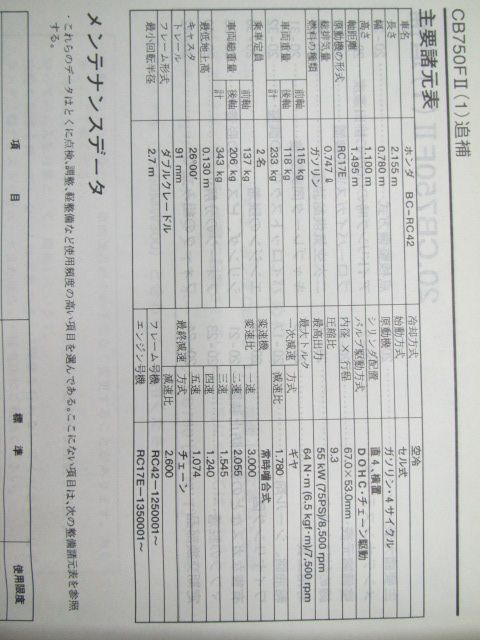 CB750FⅡ(1)追補
主要諸元表
車名 ホンダ BC-RC42
長さ 2.155 m
幅 0.780 m
高さ 1.100 m
軸距離 1.495 m
原動機の形式 RC17E
総排気量 0.747 ℓ
燃料の種類 ガソリン
車両重量 前軸 115 kg
後軸 118 kg
計 233 kg
乗車定員 2 名
車両総重量 前軸 137 kg
後軸 206 kg
計 343 kg
最低地上高 0.130 m
キャスタ 26°00′
トレール 91 mm
フレーム形式 ダブルクレードル
最小回転半径 2.7 m
冷却方式 空冷
始動方式 セル式
原動機 ガソリン・4サイクル
シリンダ配置 直4、横置
バルブ駆動方式 DOHC・チェーン駆動
内径×行程 67.0×53.0mm
圧縮比 9.3
最高出力 55 kW (75PS)/8,500 rpm
最大トルク 64 N·m (6.5 kgf·m)/7,500 rpm
一次減速 方式 ギヤ
減速比 1.780
変速機 常時噛合式
変速比 一速 3.000
二速 2.055
三速 1.545
四速 1.240
五速 1.074
最終減速 方式 チェーン
減速比 2.600
フレーム号機 RC42-1250001~
エンジン号機 RC17E-1350001~
メンテナンスデータ
・これらのデータはとくに点検、調整、軽整備など使用頻度の高い項目を選んである。ここにない項目は、次の整備諸元表を参照
する。
項目 標準 使用限度